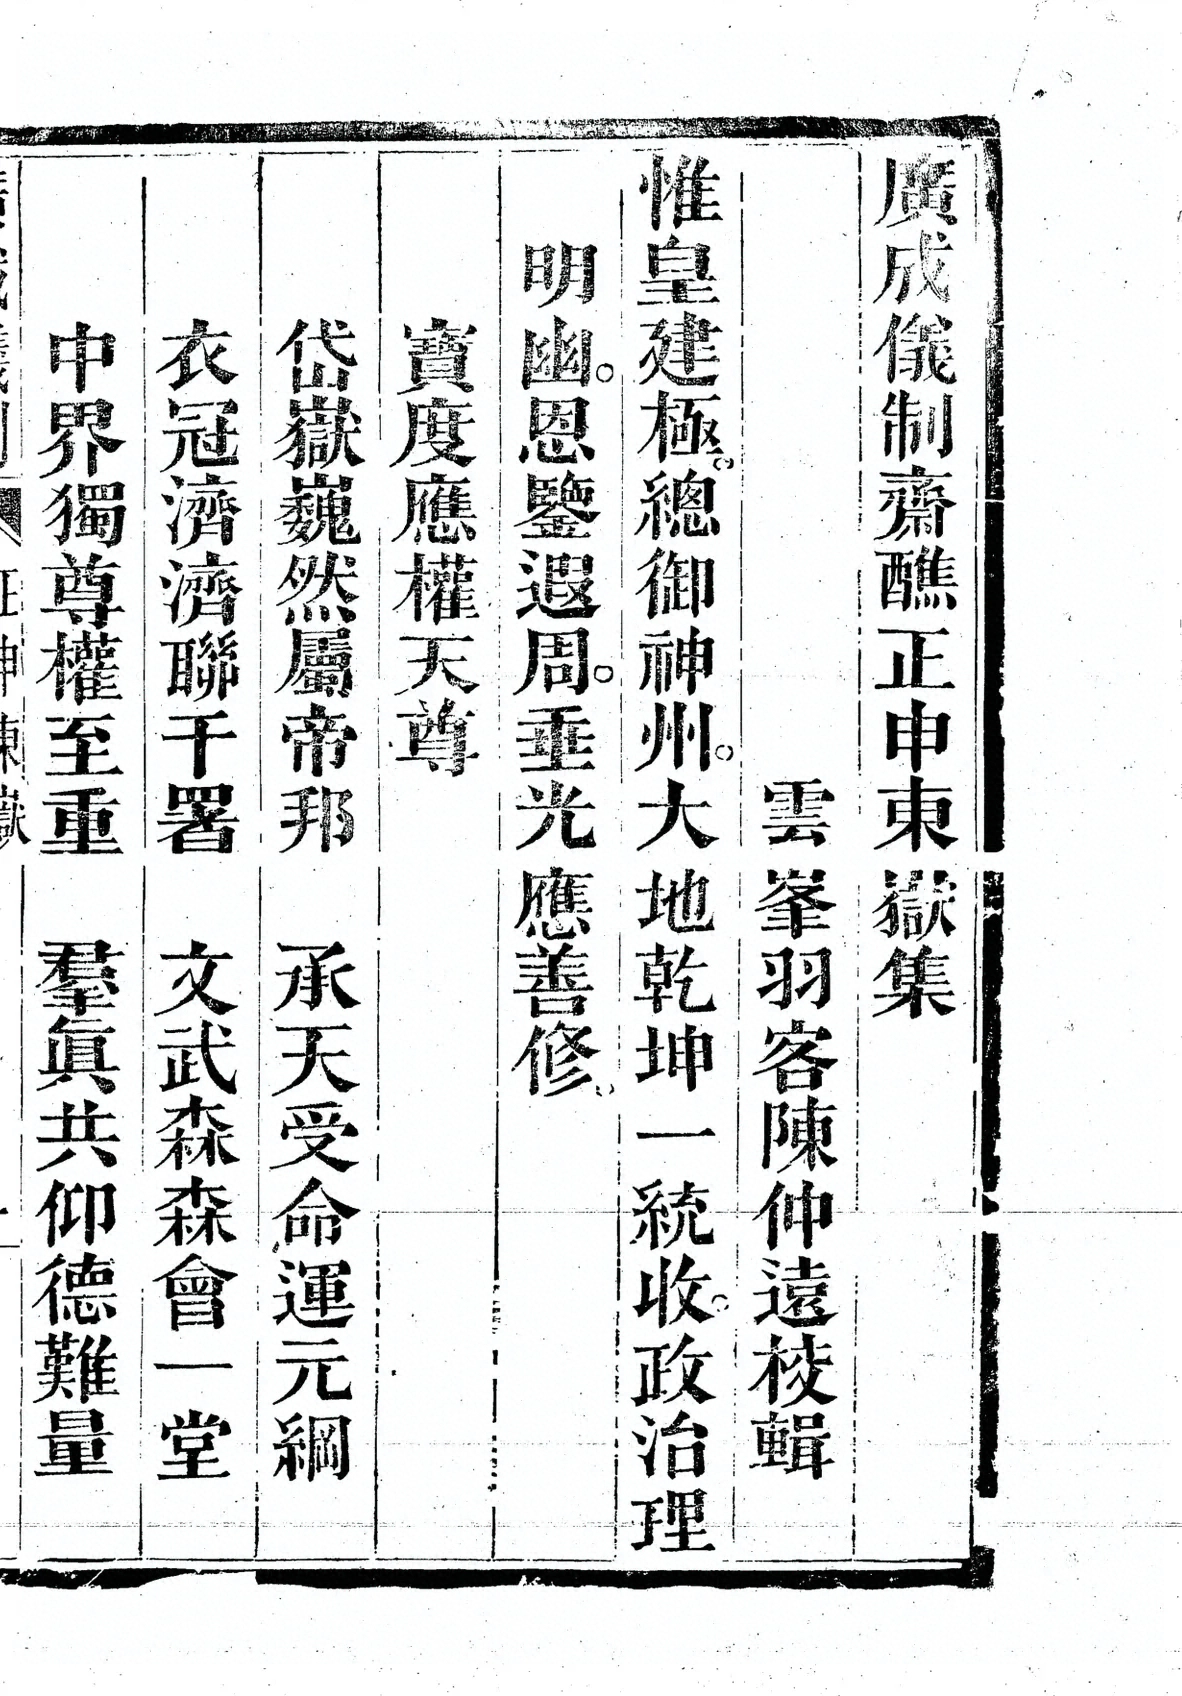 廣成儀制齋醮正申東嶽集
雲峯羽客陳仲遠校輯
惟皇建極。總御神州。大地乾坤一統收。政治理
明幽。恩鑒遐周。垂光應善修。
寶度應權天尊
岱嶽巍然屬帝邦　承天受命運元綱
衣冠濟濟聯千署　文武森森會一堂
中界獨尊權至重　羣眞共仰德難量